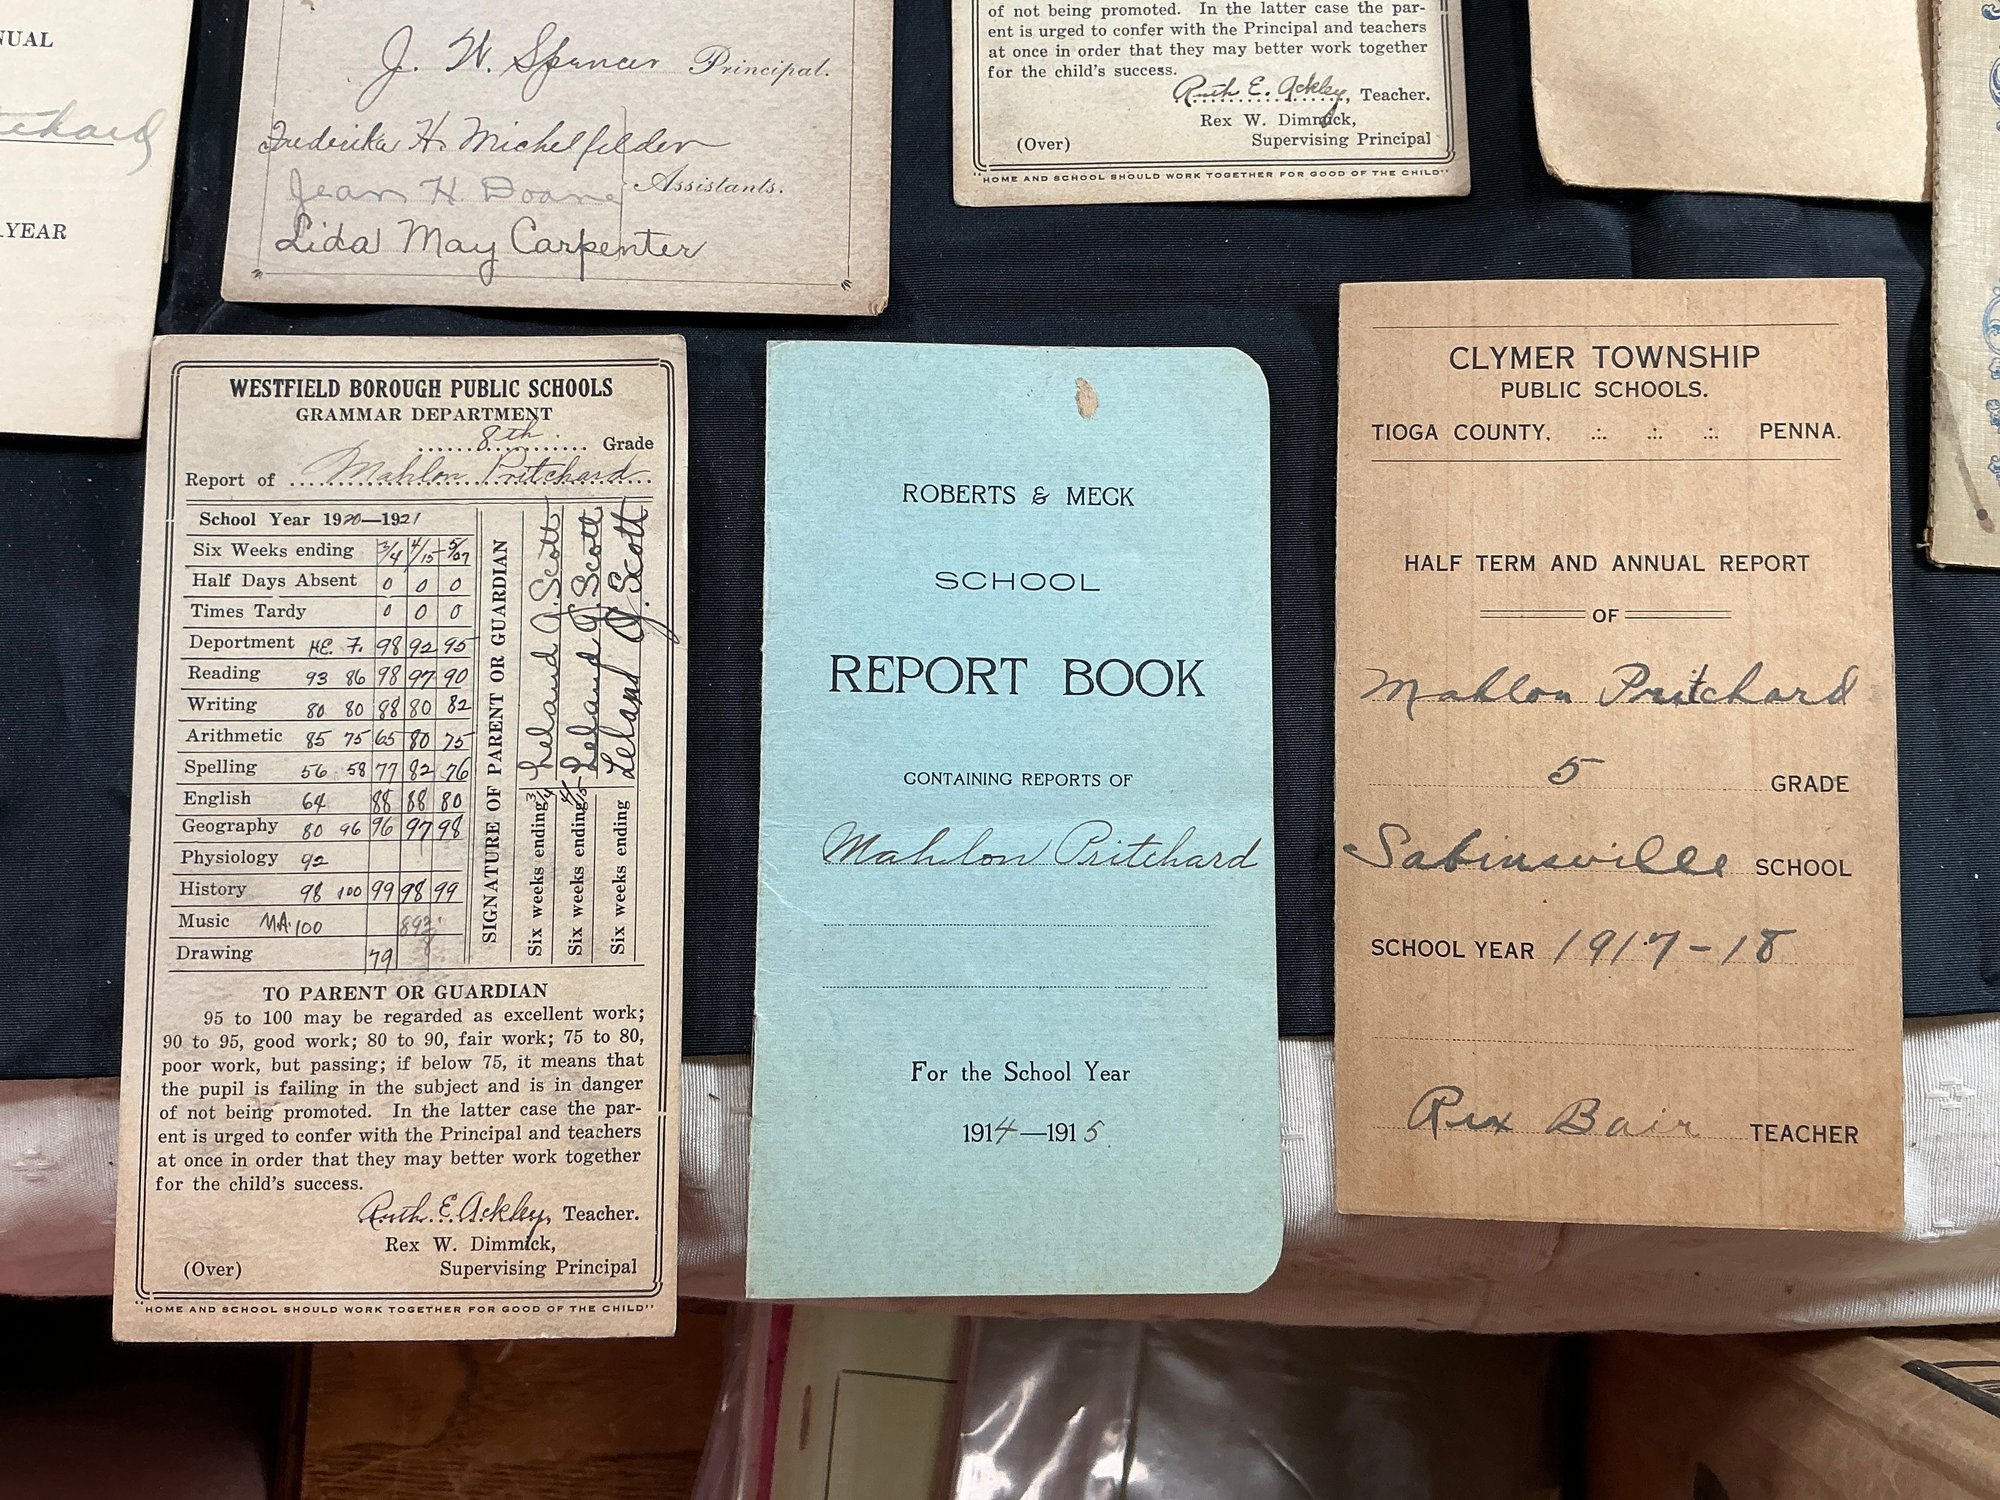 NUAL
YEAR
J. W. Spencer Principal.
Frederika H. Michelfelder
Jean H. Doane
Assistants.
Lida May Carpenter
of not being promoted. In the latter case the par-
ent is urged to confer with the Principal and teachers
at once in order that they may better work together
for the child's success.
Ruth E. Ackley, Teacher.
Rex W. Dimmick,
(Over) Supervising Principal
"HOME AND SCHOOL SHOULD WORK TOGETHER FOR GOOD OF THE CHILD"
WESTFIELD BOROUGH PUBLIC SCHOOLS
GRAMMAR DEPARTMENT
8th Grade
Report of Mahlon Pritchard
School Year 1920—1921
Six Weeks ending 3/4 4/15 5/27
Half Days Absent 0 0 0
Times Tardy 0 0 0
Deportment 7. 98 92 95
Reading 93 86 98 97 90
Writing 80 80 88 80 82
Arithmetic 85 75 65 80 75
Spelling 56 58 77 82 76
English 64 88 88 80
Geography 80 96 96 97 98
Physiology 92
History 98 100 99 98 99
Music MA. 100
Drawing 79
SIGNATURE OF PARENT OR GUARDIAN
Six weeks ending 3/4 Leland J. Scott
Six weeks ending 4/15 Leland J. Scott
Six weeks ending Leland J. Scott
TO PARENT OR GUARDIAN
95 to 100 may be regarded as excellent work;
90 to 95, good work; 80 to 90, fair work; 75 to 80,
poor work, but passing; if below 75, it means that
the pupil is failing in the subject and is in danger
of not being promoted. In the latter case the par-
ent is urged to confer with the Principal and teachers
at once in order that they may better work together
for the child's success.
Ruth E. Ackley, Teacher.
Rex W. Dimmick,
(Over) Supervising Principal
"HOME AND SCHOOL SHOULD WORK TOGETHER FOR GOOD OF THE CHILD"
ROBERTS & MECK
SCHOOL
REPORT BOOK
CONTAINING REPORTS OF
Mahlon Pritchard
For the School Year
1914—1915
CLYMER TOWNSHIP
PUBLIC SCHOOLS.
TIOGA COUNTY, .:. .:. .:. PENNA.
HALF TERM AND ANNUAL REPORT
OF
Mahlon Pritchard
5 GRADE
Sabinsville SCHOOL
SCHOOL YEAR 1917-18
Rex Bair TEACHER